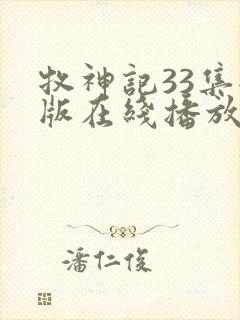 牧神記33集
版在綫播放
潘仁俊